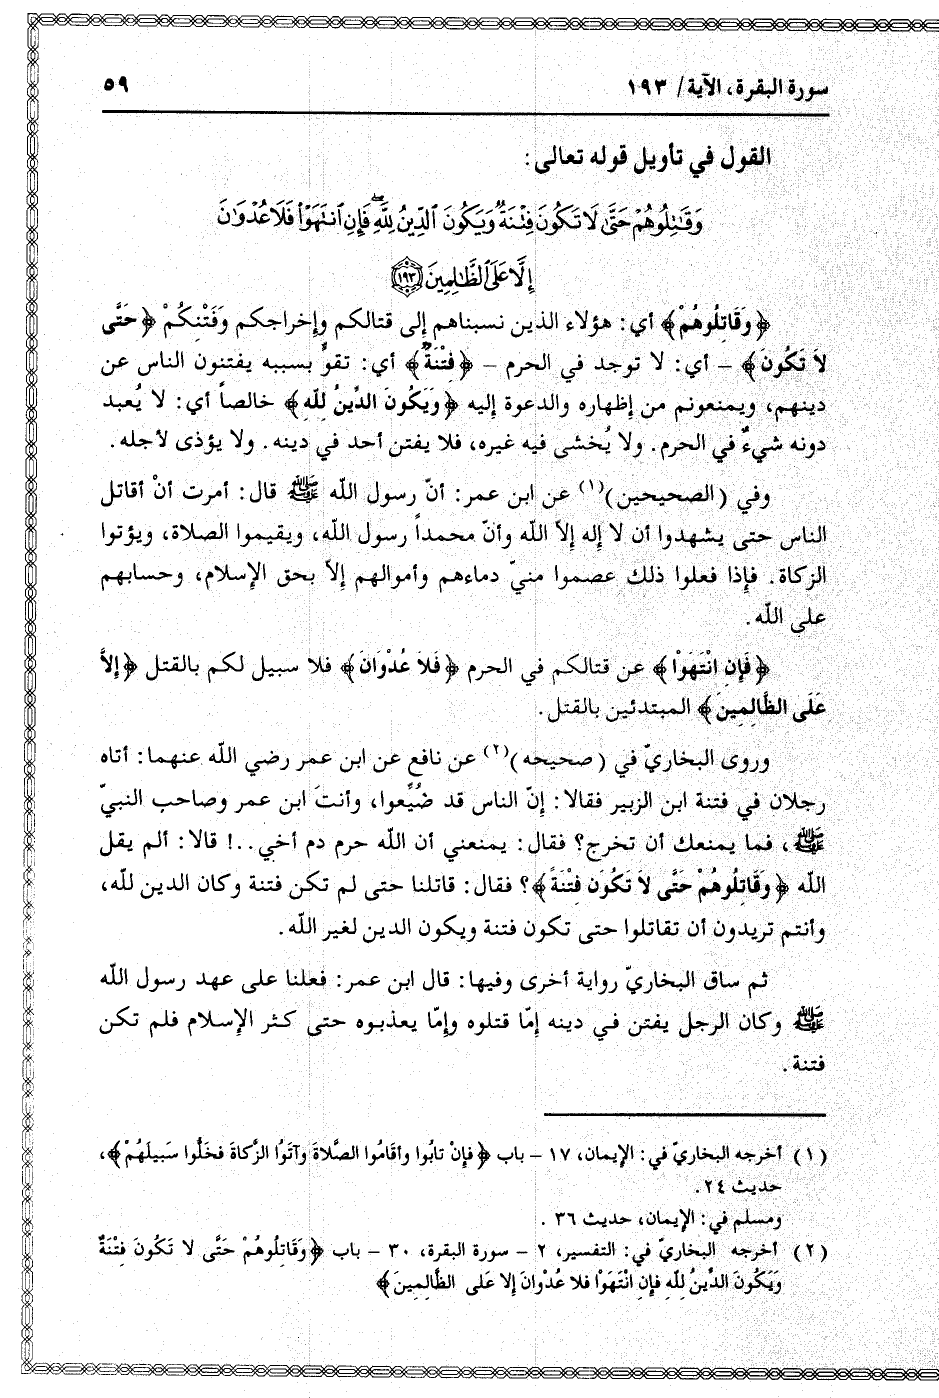 سورة البقرة، الآية/ ١٩٣
٥٩
القول في تأويل قوله تعالى:
وَقَٰتِلُوهُمْ حَتَّىٰ لَا تَكُونَ فِتْنَةٌ وَيَكُونَ ٱلدِّينُ لِلَّهِ ۖ فَإِنِ ٱنتَهَوْا۟ فَلَا عُدْوَٰنَ
إِلَّا عَلَى ٱلظَّٰلِمِينَ ١٩٣
﴿وَقَاتِلُوهُمْ﴾ أي: هؤلاء الذين نسبناهم إلى قتالكم وإخراجكم وَفَتْنِكُمْ ﴿حَتَّى
لاَ تَكُونَ﴾ – أي: لا توجد في الحرم – ﴿فِتْنَةٌ﴾ أي: تقوٍّ بسببه يفتنون الناس عن
دينهم، ويمنعونم من إظهاره والدعوة إليه ﴿وَيَكُونَ الدِّينُ لِلّهِ﴾ خالصاً أي: لا يُعبد
دونه شيءٌ في الحرم. ولا يُخشى فيه غيره، فلا يفتن أحد في دينه. ولا يؤذى لأجله.
وفي (الصحيحين)(١) عن ابن عمر: أنّ رسول اللّه ﷺ قال: أمرت أنْ أقاتل
الناس حتى يشهدوا أن لا إله إلاّ اللّه وأنّ محمداً رسول اللّه، ويقيموا الصلاة، ويؤتوا
الزكاة. فإذا فعلوا ذلك عصموا منيّ دماءهم وأموالهم إلاّ بحق الإسلام، وحسابهم
على اللّه.
﴿فَإِن انْتَهَوْا﴾ عن قتالكم في الحرم ﴿فَلاَ عُدْوَانَ﴾ فلا سبيل لكم بالقتل ﴿إِلاَّ
عَلَى الظَّالِمِينَ﴾ المبتدئين بالقتل.
وروى البخاريّ في (صحيحه)(٢) عن نافع عن ابن عمر رضي اللّه عنهما: أتاه
رجلان في فتنة ابن الزبير فقالا: إنّ الناس قد ضُيِّعوا، وأنتَ ابن عمر وصاحب النبيّ
ﷺ، فما يمنعك أن تخرج؟ فقال: يمنعني أن اللّه حرم دم أخي..! قالا: ألم يقل
اللّه ﴿وَقَاتِلُوهُمْ حَتَّى لاَ تَكُونَ فِتْنَةً﴾؟ فقال: قاتلنا حتى لم تكن فتنة وكان الدين لله،
وأنتم تريدون أن تقاتلوا حتى تكون فتنة ويكون الدين لغير اللّه.
ثم ساق البخاريّ رواية أخرى وفيها: قال ابن عمر: فعلنا على عهد رسول اللّه
ﷺ وكان الرجل يفتن في دينه إمّا قتلوه وإمّا يعذبوه حتى كثر الإسلام فلم تكن
فتنة.
(١) أخرجه البخاريّ في: الإيمان، ١٧ – باب ﴿فإِنْ تابُوا وأَقامُوا الصَّلاةَ وآتَوُا الزَّكاةَ فخَلُّوا سَبيلَهُمْ﴾،
حديث ٢٤.
ومسلم في: الإيمان، حديث ٣٦ .
(٢) أخرجه البخاريّ في: التفسير، ٢ – سورة البقرة، ٣٠ – باب ﴿وَقَاتِلُوهُمْ حَتَّى لا تَكُونَ فِتْنَةٌ
وَيَكُونَ الدِّينُ لِلّهِ فإِنِ انْتَهَوْا فلا عُدْوَانَ إلا عَلى الظَّالِمينَ﴾